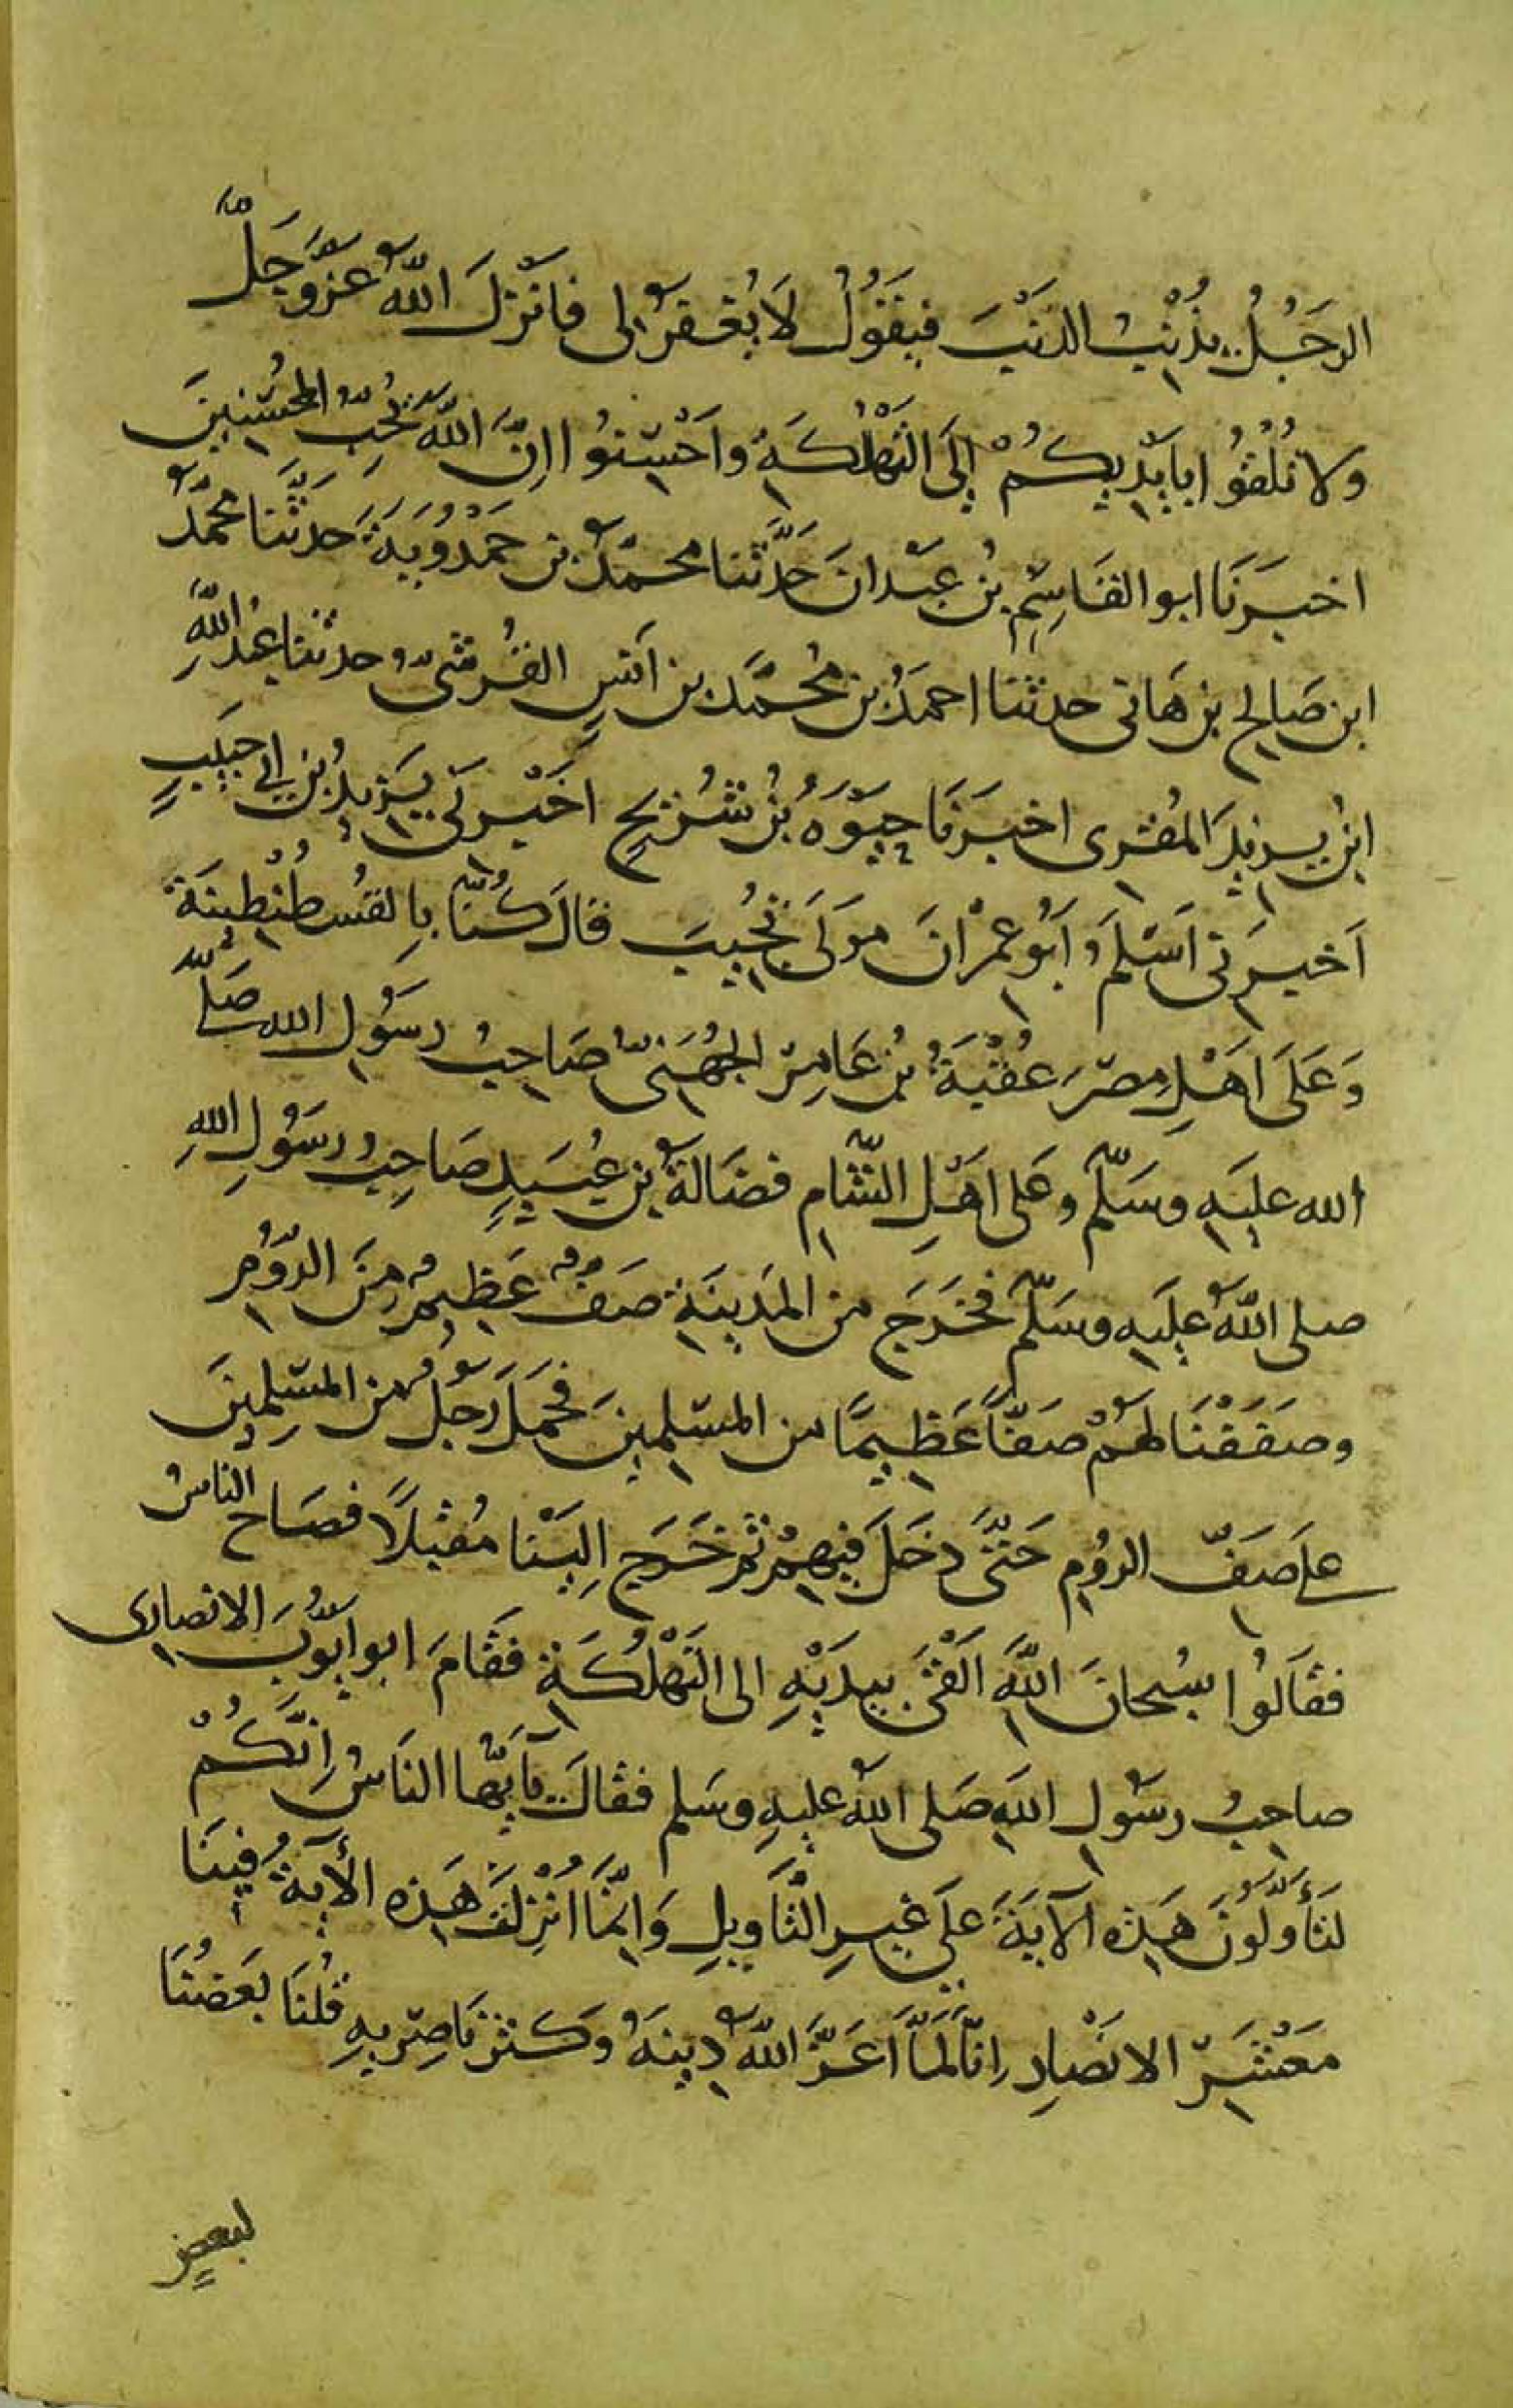 الرجُلُ يذْنِبُ الذنبَ فيقولُ لَا يُغفرُ لى فانزلَ اللهُ عزّ وجَلّ
ولا تُلْقُوا بِأَيْدِيكُمْ إِلَى التَهْلُكَةِ وَاَحْسِنُوا اِنَّ اللهَ يُحِبُّ المُحْسِنِينَ
اخبَرَنَا ابو القَاسِمِ بْنُ عَبْدانَ حَدَّثنا محمّدُ بن حَمْدُوَيَةَ حَدثَّنَا محمّدُ
ابن صَالِحِ بن هَانى حدثنا احمَدُ بن مُحمَّد بن اَنَسٍ القُرشىُّ حدثنا عبْدُ اللهِ
ابنُ يزيدَ المُقرى اخبَرَنَا حيوَةُ بْنُ شُرَيحٍ اخْبَرَنى يَزيدُ بن ابى حَبيبٍ
اَخبرَنى اَسْلَمُ اَبُو عِمْرانَ مَولَى تُجِيبَ قالَ كُنّا بِالقُسطُنْطِينَةَ
وَعَلَى اَهْلِ مِصْرَ عُقْبَةُ بْنُ عَامِرٍ الجُهَنىُّ صَاحِبُ رسُول الله صَلَّى
الله عليَهِ وسَلّم وعَلى اهْلِ الشّام فضَالَةُ بن عُبَيدٍ صَاحِبُ رسُولِ اللهِ
صلى اللهُ عليَهِ وسَلّم فخرَجَ من المَدينَةِ صَفٌّ عَظِيمٌ مِنَ الرُّومِ
وصَفَفْنَا لَهُمْ صَفّاً عَظيمًا من المسْلِمينَ فحمَلَ رَجُلٌ من المسْلِمينَ
على صَفّ الرُومِ حَتّى دخَلَ فيهِمْ ثم خَرَج اِلَيْنا مُقْبِلًا فصَاحَ الناسُ
فقَالُوا سُبحانَ اللهِ اَلْقَى بيدَيْهِ الى التَهْلُكَةِ فقَامَ ابو ايّوُبَ الانصارى
صاحِبُ رسُول اللهِ صَلى اللهُ عليهِ وسَلم فقالَ يآ ايّها الناسُ اِنّكُمْ
لتَأَوّلُونَ هَذِهِ الآيَةَ على غيرِ التّأويلِ وَاِنّمَا اُنْزِلَتْ هَذه الأيةُ فينَا
مَعْشَرَ الانصَارِ اِنّا لَمّا اَعَزَّ اللهُ دينَهُ وكَثُرَ نَاصِرِيهِ قُلنَا بَعضُنَا
لبعضٍ